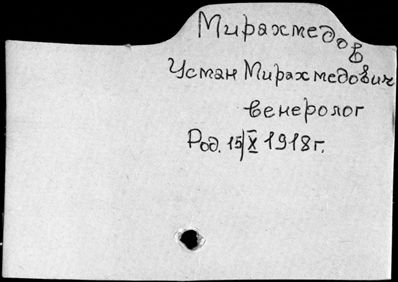 Мирахмедов
Усман Мирахмедович
венеролог
Род. 15/X 1918г.